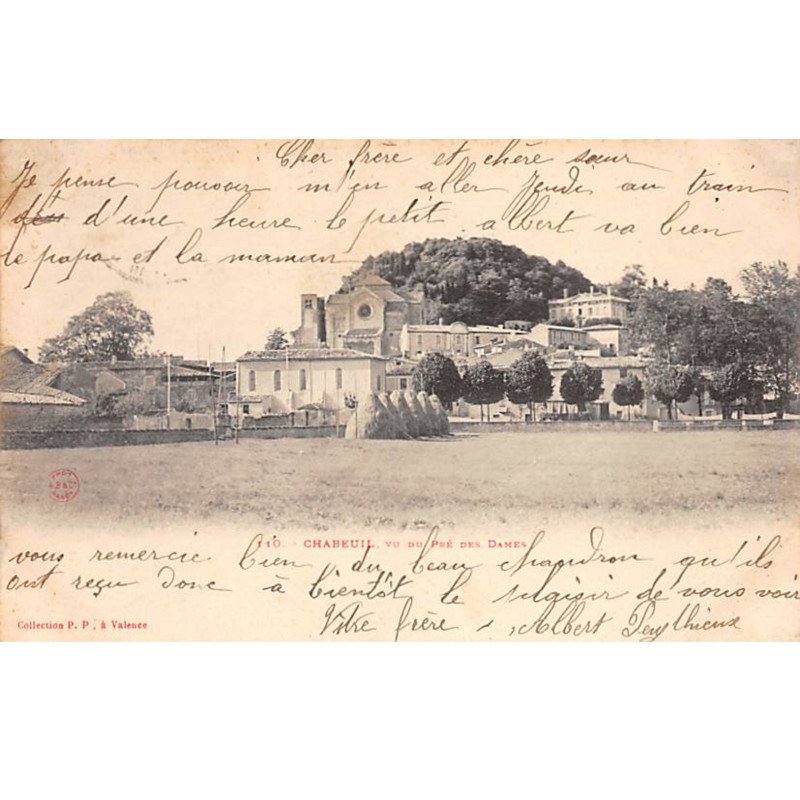 Cher frère et chère sœur
Je pense pouvoir m'en aller Jeudi au train
d'une heure le petit albert va bien
le papa et la maman
110. - CHABEUIL, VU DU PRÉ DES DAMES
vous remercie bien du beau chaudron qu'ils
ont reçu donc à bientôt le plaisir de vous voir
Votre frère Albert
Collection P. P., à Valence